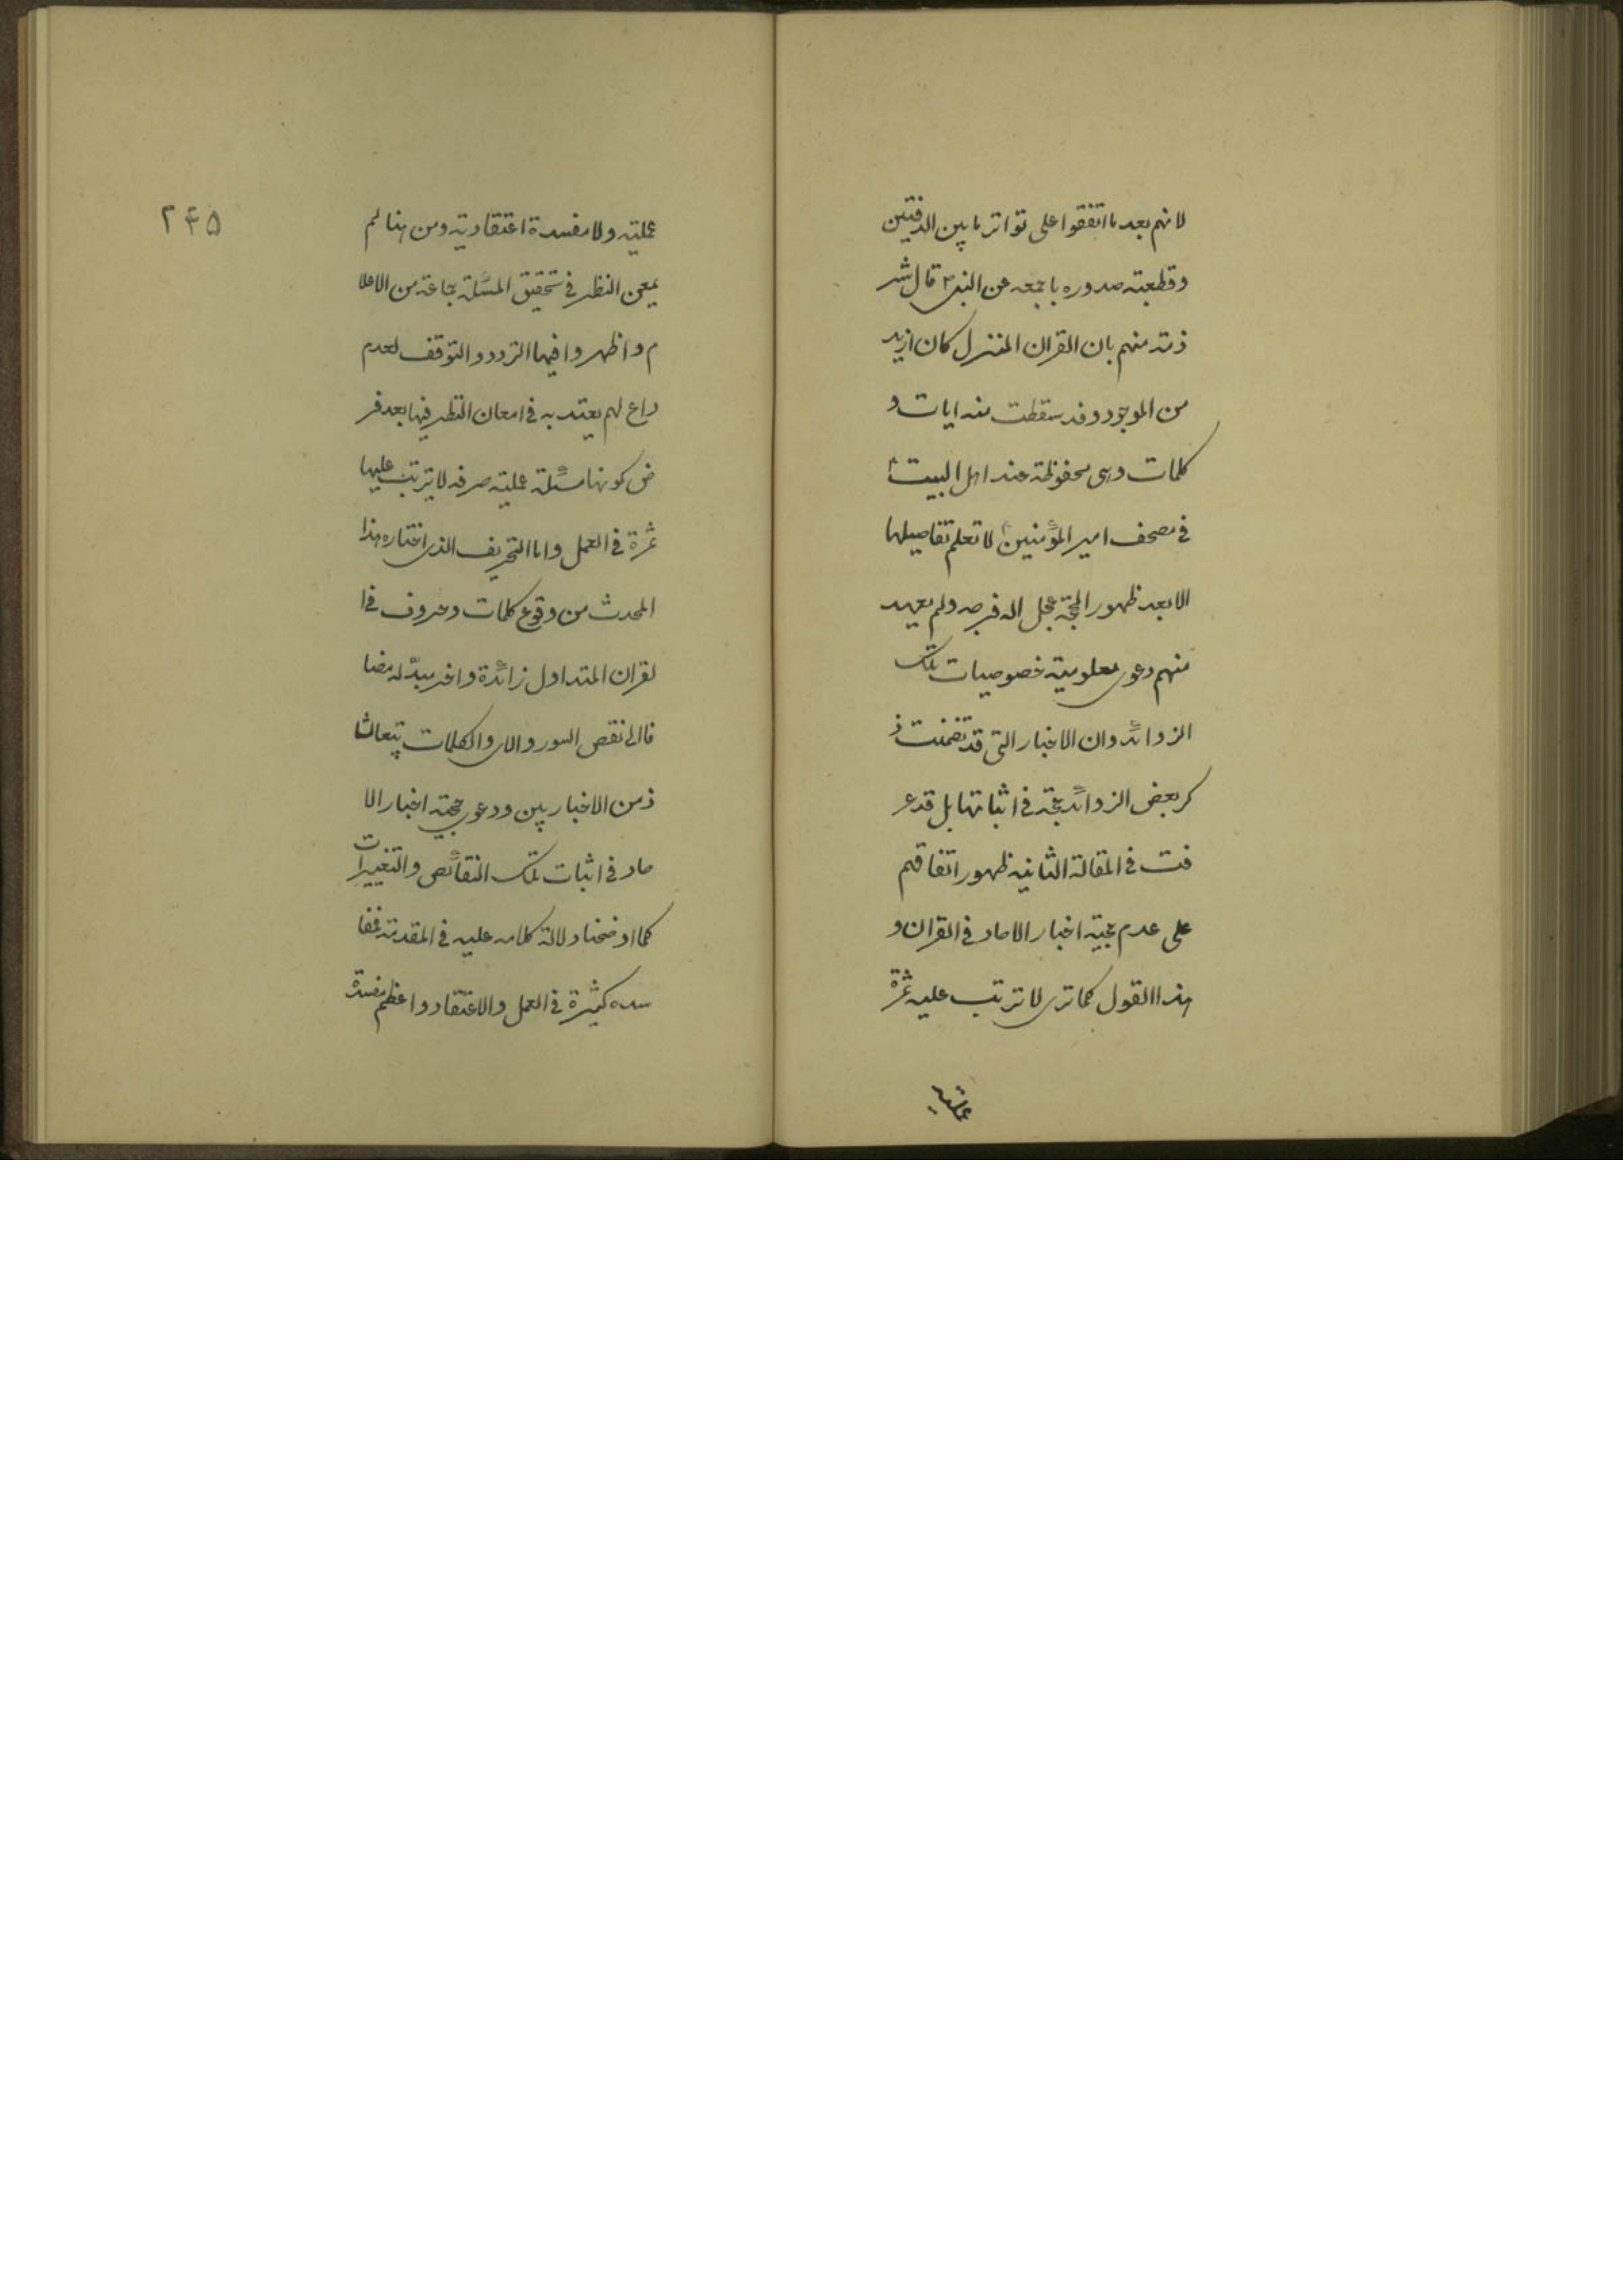 لانهم بعد ما اتفقوا على تواتر ما بين الدفتين
وقطعية صدوره باجمعه عن النبی ص قال شر
ذمة منهم بان القران المنزل كان ازيد
من الموجود وقد سقطت منه ايات و
كلمات وهی محفوظة عند اهل البيت ع
فی مصحف امير المؤمنين ع لا تعلم تفاصيلها
الا بعد ظهور الحجة عجل اله فرجه ولم يعهد
منهم دعوی معلومية خصوصيات تلك
الزوائد وان الاخبار التی قد تضمنت ذ
كر بعض الزوائد حجة فی اثباتها بل قد عر
فت فی المقالة الثانيه ظهور اتفاقهم
علی عدم حجية اخبار الاحاد فی القران و
هذا القول كما تری لا ترتب عليه ثمرة
عمليه
۲۴۵
عمليه ولا مفسدة اعتقادية ومن هنا لم
يمعن النظر فی تحقيق المسئلة جماعة من الاعلا
م واظهروا فيها التردد والتوقف لعدم
داع لهم يعتد به فی امعان النظر فيها بعد فر
ض كونها مسئلة علمية صرفه لا يترتب عليها
ثمرة فی العمل واما التحريف الذی اختاره هذا
المحدث من وقوع كلمات وحروف فی ا
لقران المتداول زائدة واخر مبدّله مضا
فا الی نقص السور والای والكلمات تبعا لشا
ذ من الاخباريين ودعوی حجية اخبار الا
حاد فی اثبات تلك النقائص والتغييرات
كما اوضحنا دلالة كلامه عليه فی المقدمة فمفا
سده كثيرة فی العمل والاعتقاد واعظم مفسدة